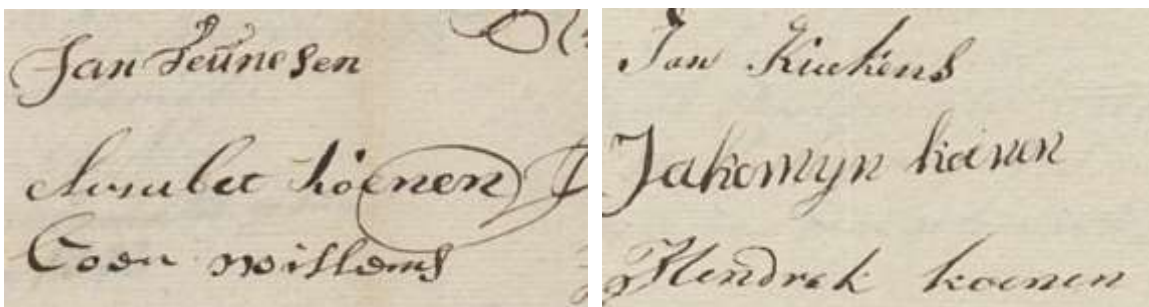 Jan Teunesen
koenen
Coen willems
Jan
Jakomyn koenen
Hendrek koenen